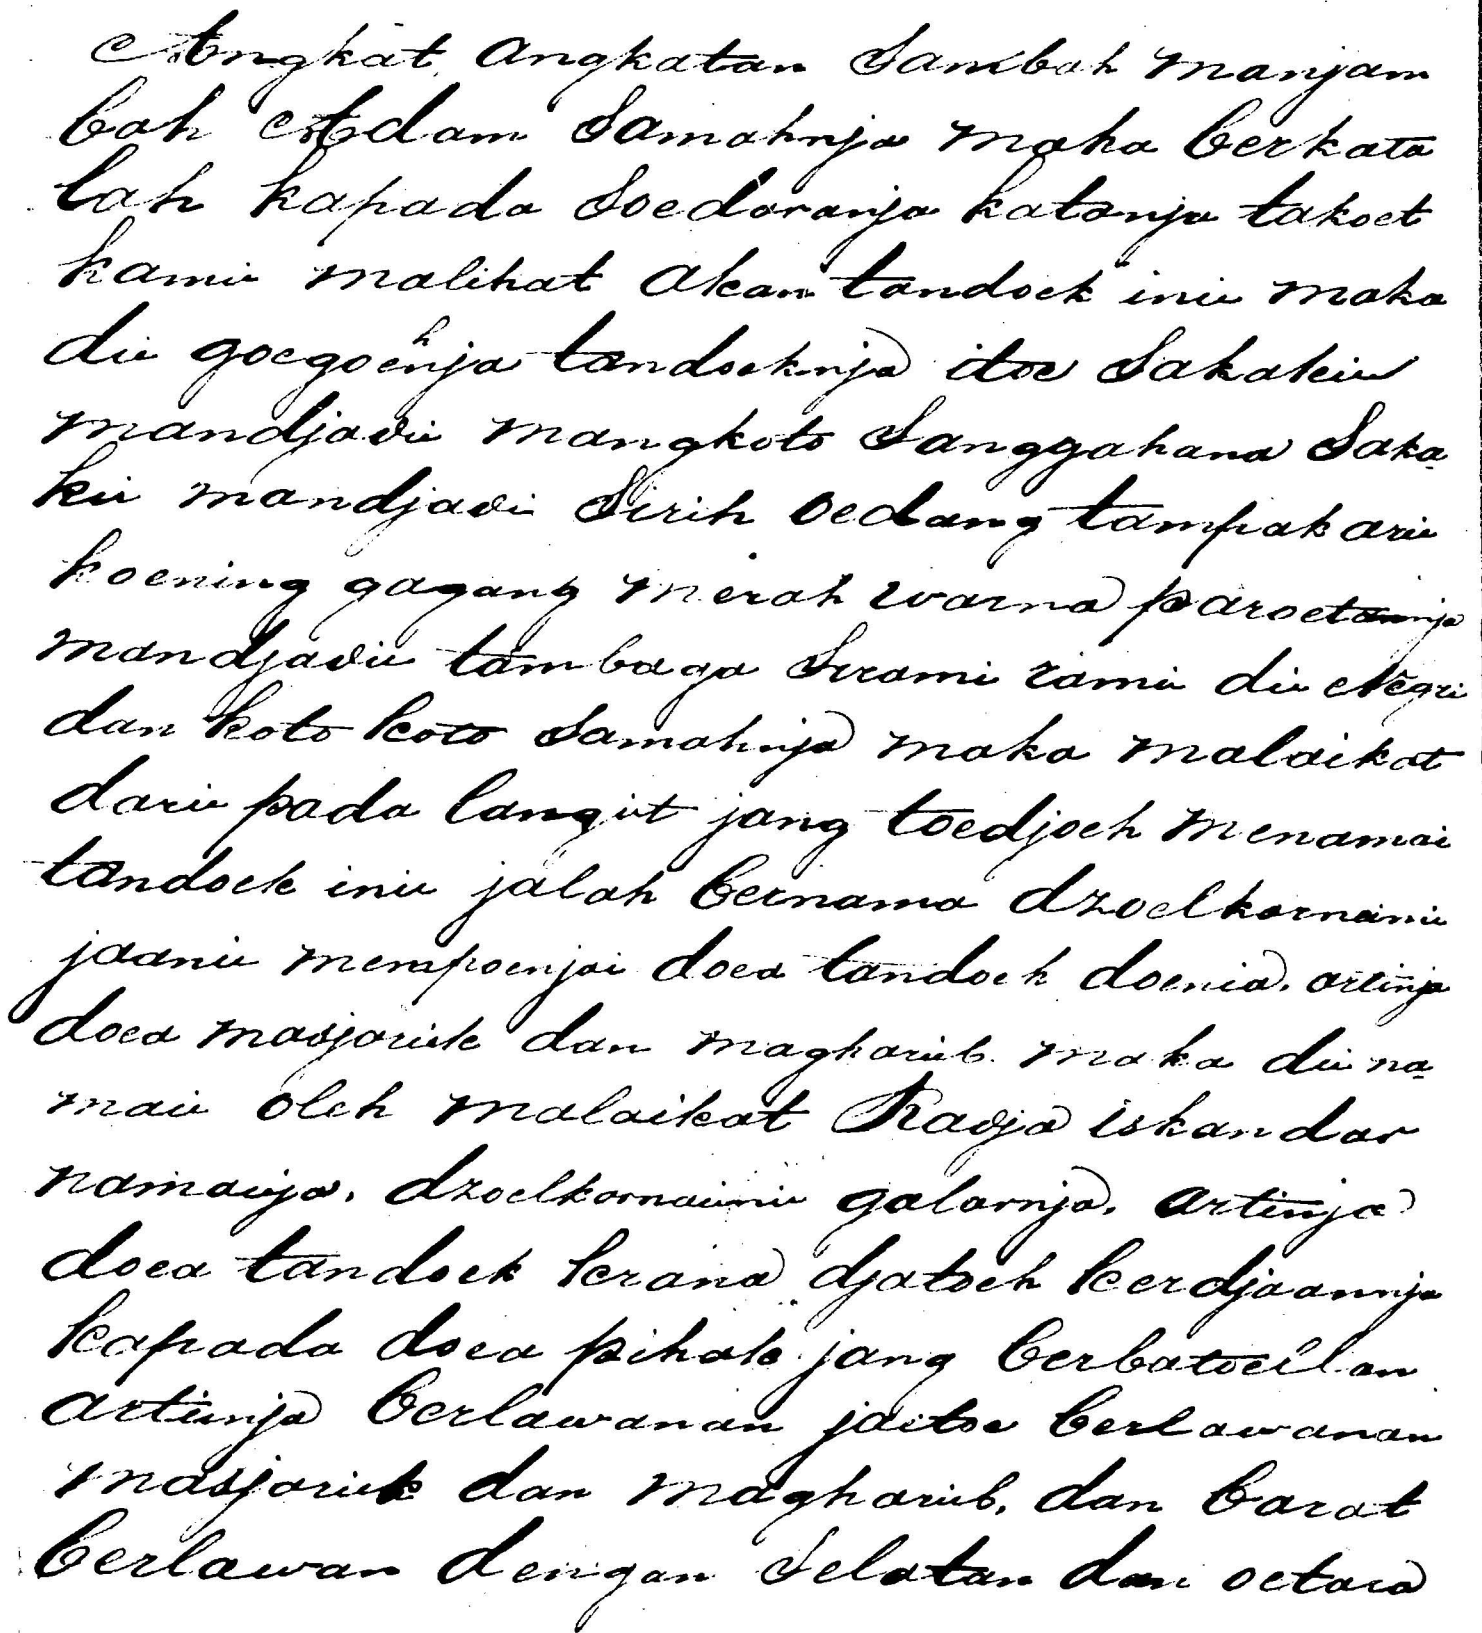 Angkat angkatan Sambah manjam
bah Adam Samahnja maka berkata
lah kapada Soedaranja katanja takoet
kami malihat akan tandoek ini maka
di goegoehnja tandoeknja itoe Sakaki
mandjadi mangkoto Sanggahana Saka-
ki mandjadi Sirih oedang tampak ari
koening gagang merah warna paroetannja
mandjadi tambaga Sirami rami di Negri
dan koto koto Samahnja maka malaikat
dari pada langit jang toedjoeh menamai
tandoek ini jalah bernama dzoelkarnaini
jaani mempoenjai doea tandoek doenia, artinja
doea masjarik dan magharib maka di na-
mai oleh malaikat Radja iskandar
namanja, dzoelkarnaini galarnja, artinja
doea tandoek krana djatoeh kerdjaannja
kapada doea pihak jang berbatoelan
artinja berlawanan jaitoe berlawanan
masjarik dan magharib, dan barat
berlawan dengan Selatan dan oetara